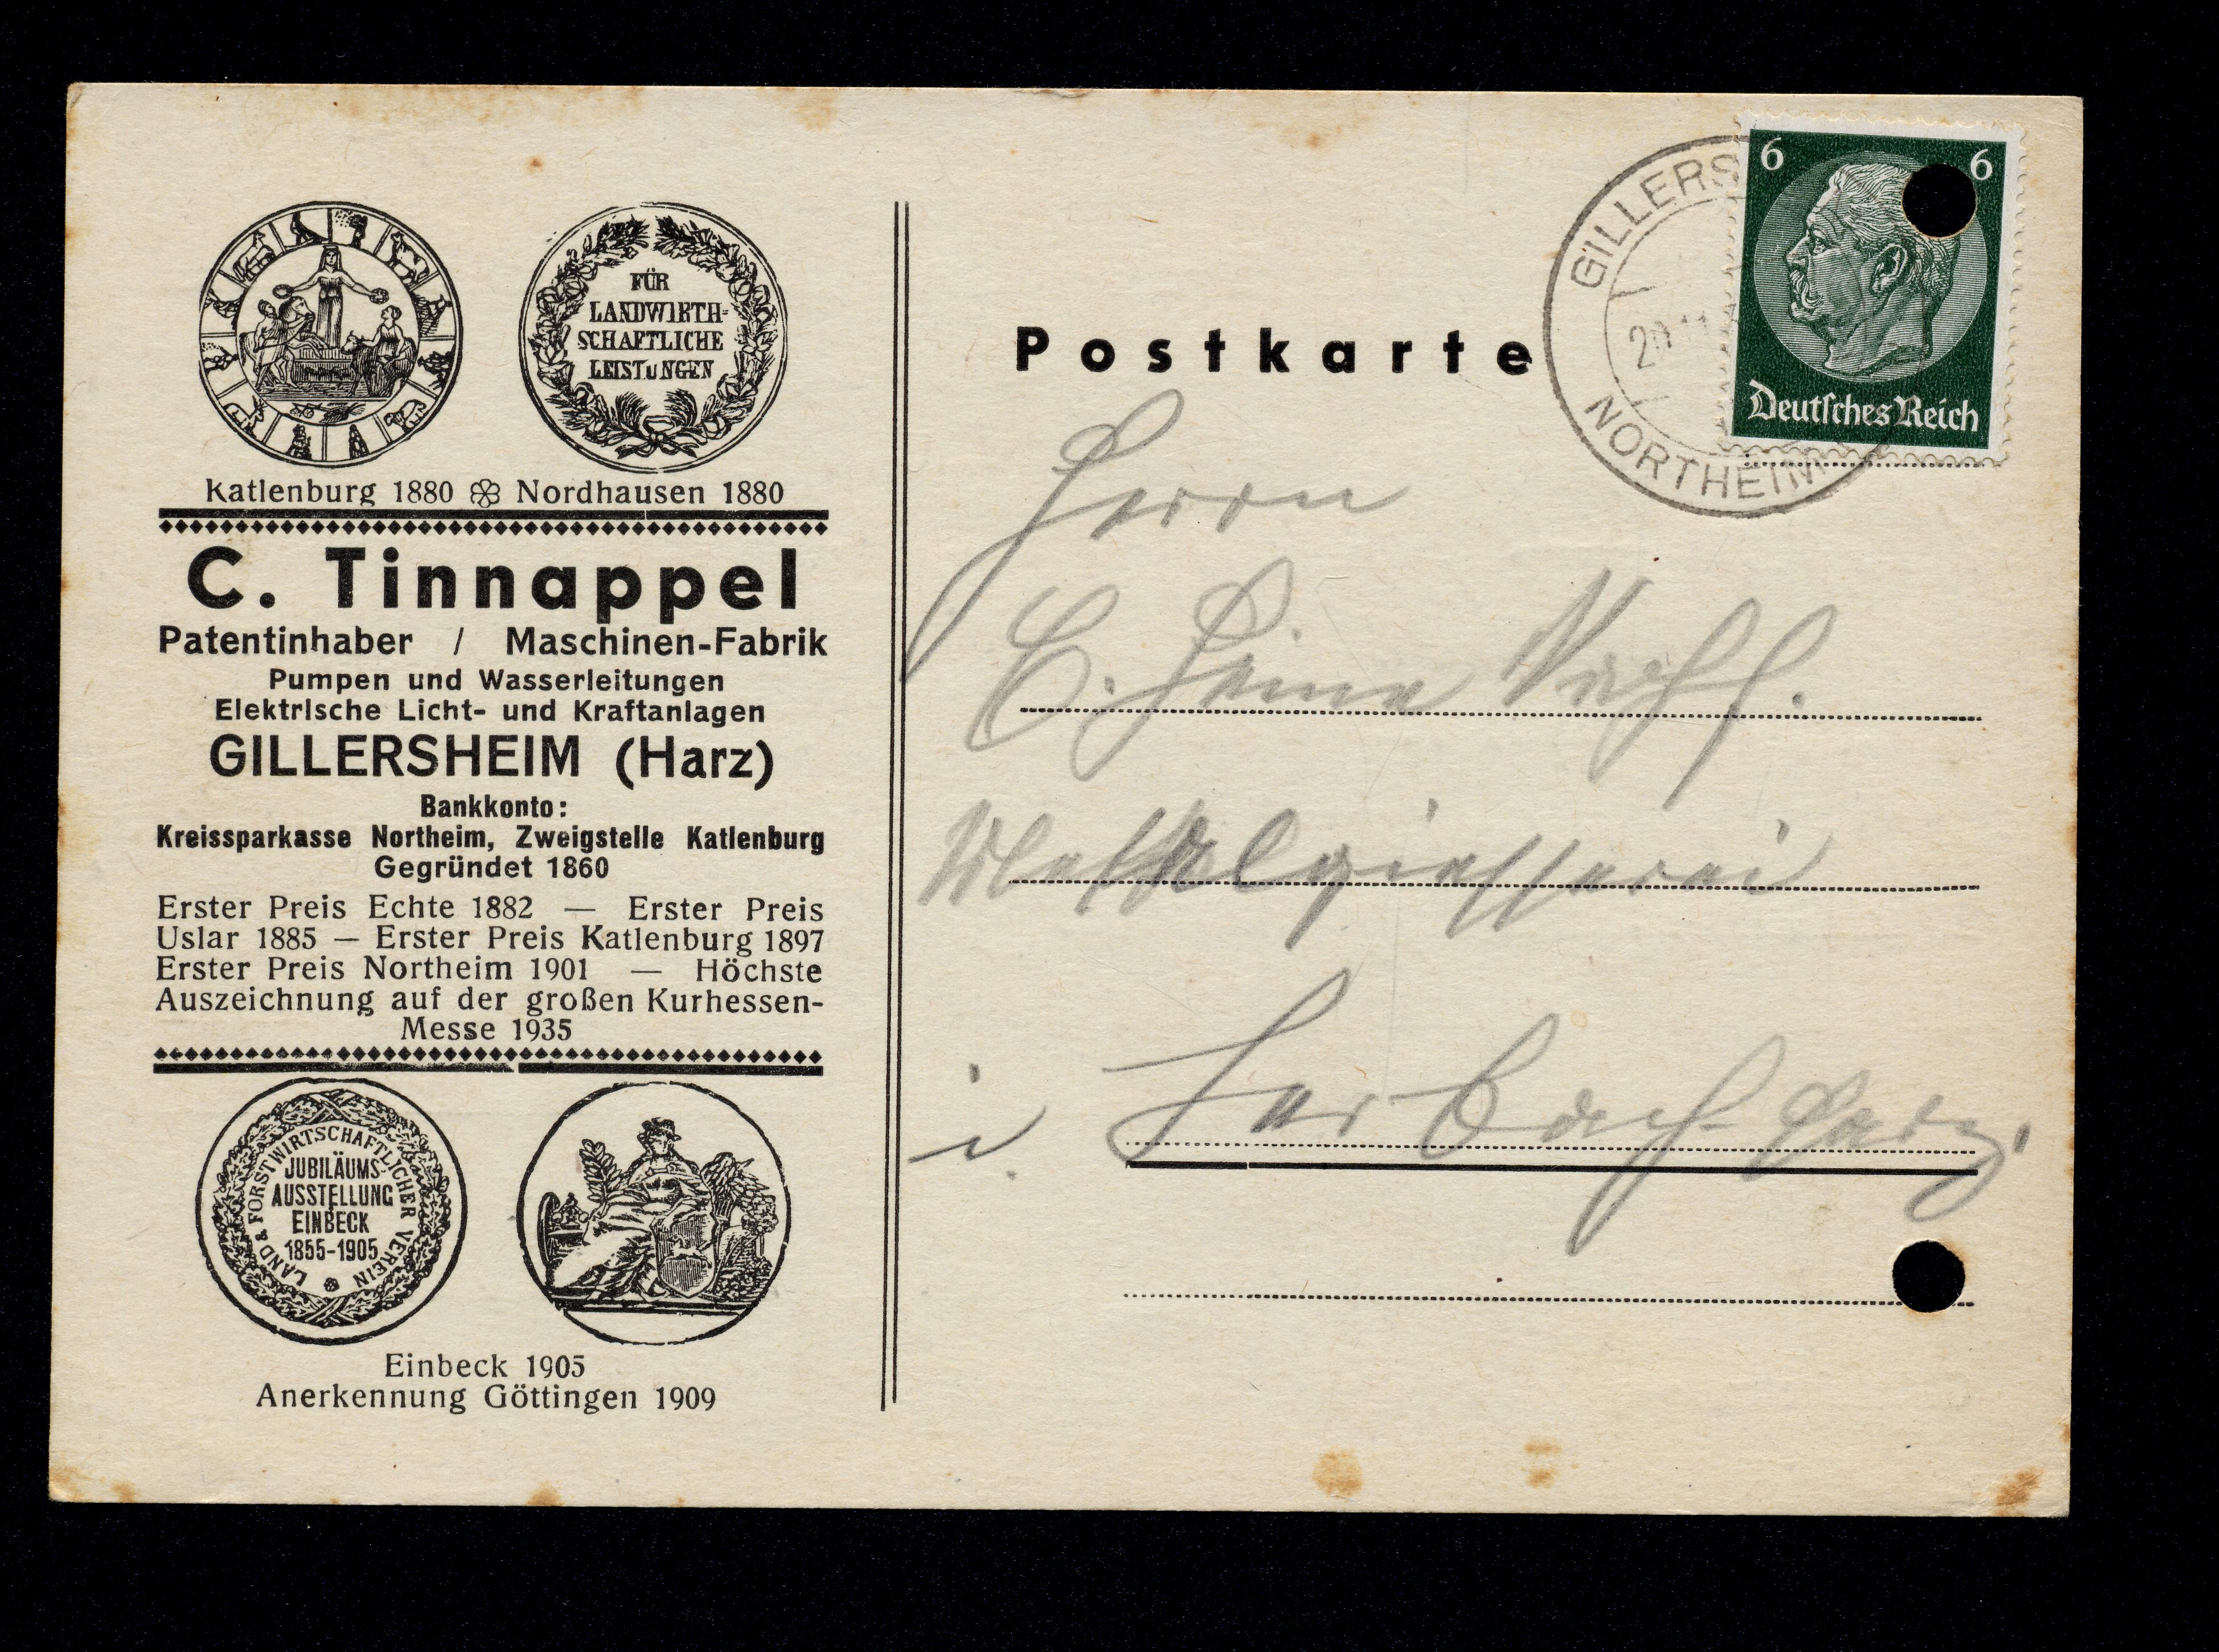 FÜR
LANDWIRTH-
SCHAFTLICHE
LEISTUNGEN
Katlenburg 1880 Nordhausen 1880
C. Tinnappel
Patentinhaber / Maschinen-Fabrik
Pumpen und Wasserleitungen
Elektrische Licht- und Kraftanlagen
GILLERSHEIM (Harz)
Bankkonto:
Kreissparkasse Northeim, Zweigstelle Katlenburg
Gegründet 1860
Erster Preis Echte 1882 — Erster Preis
Uslar 1885 — Erster Preis Katlenburg 1897
Erster Preis Northeim 1901 — Höchste
Auszeichnung auf der großen Kurhessen-
Messe 1935
LAND & FORSTWIRTSCHAFTLICHER VEREIN
JUBILÄUMS-
AUSSTELLUNG
EINBECK
1855-1905
Einbeck 1905
Anerkennung Göttingen 1909
Postkarte
GILLERS
NORTHEIM
6 6
Deutsches Reich
Herrn
C. Heine Nachf.
Metallgiesserei
i. Lerbach Harz.